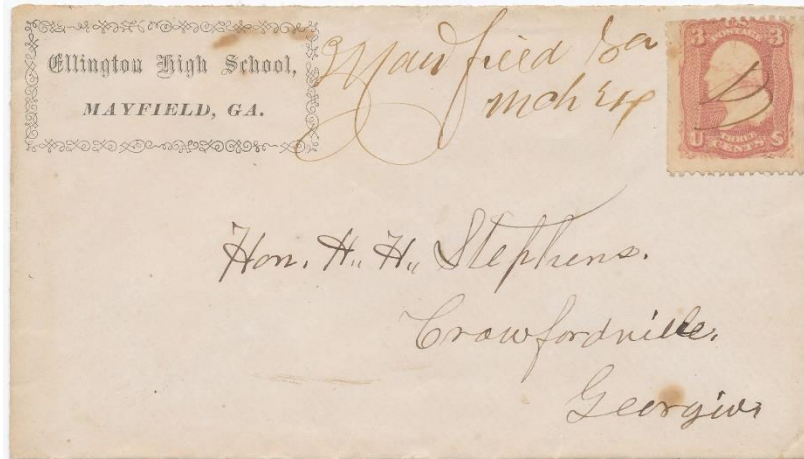 Ellington High School,
MAYFIELD, GA.
Mayfield Ga
Mch 24
3 U.S. POSTAGE 3
U THREE CENTS S
Hon. H. H. Stephens.
Crawfordville,
Georgia